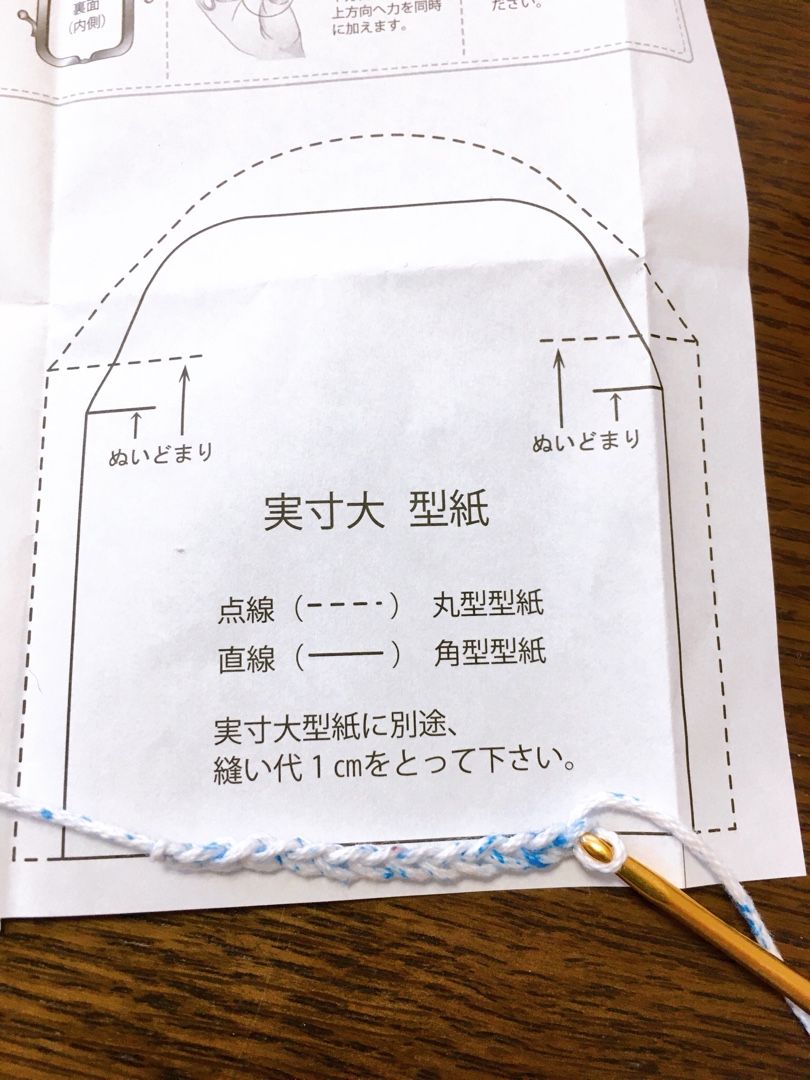 裏面
(内側)
上方向へ力を同時
に加えます。
ださい。
ぬいどまり
ぬいどまり
実寸大 型紙
点線（----） 丸型型紙
直線（───） 角型型紙
実寸大型紙に別途、
縫い代1㎝をとって下さい。